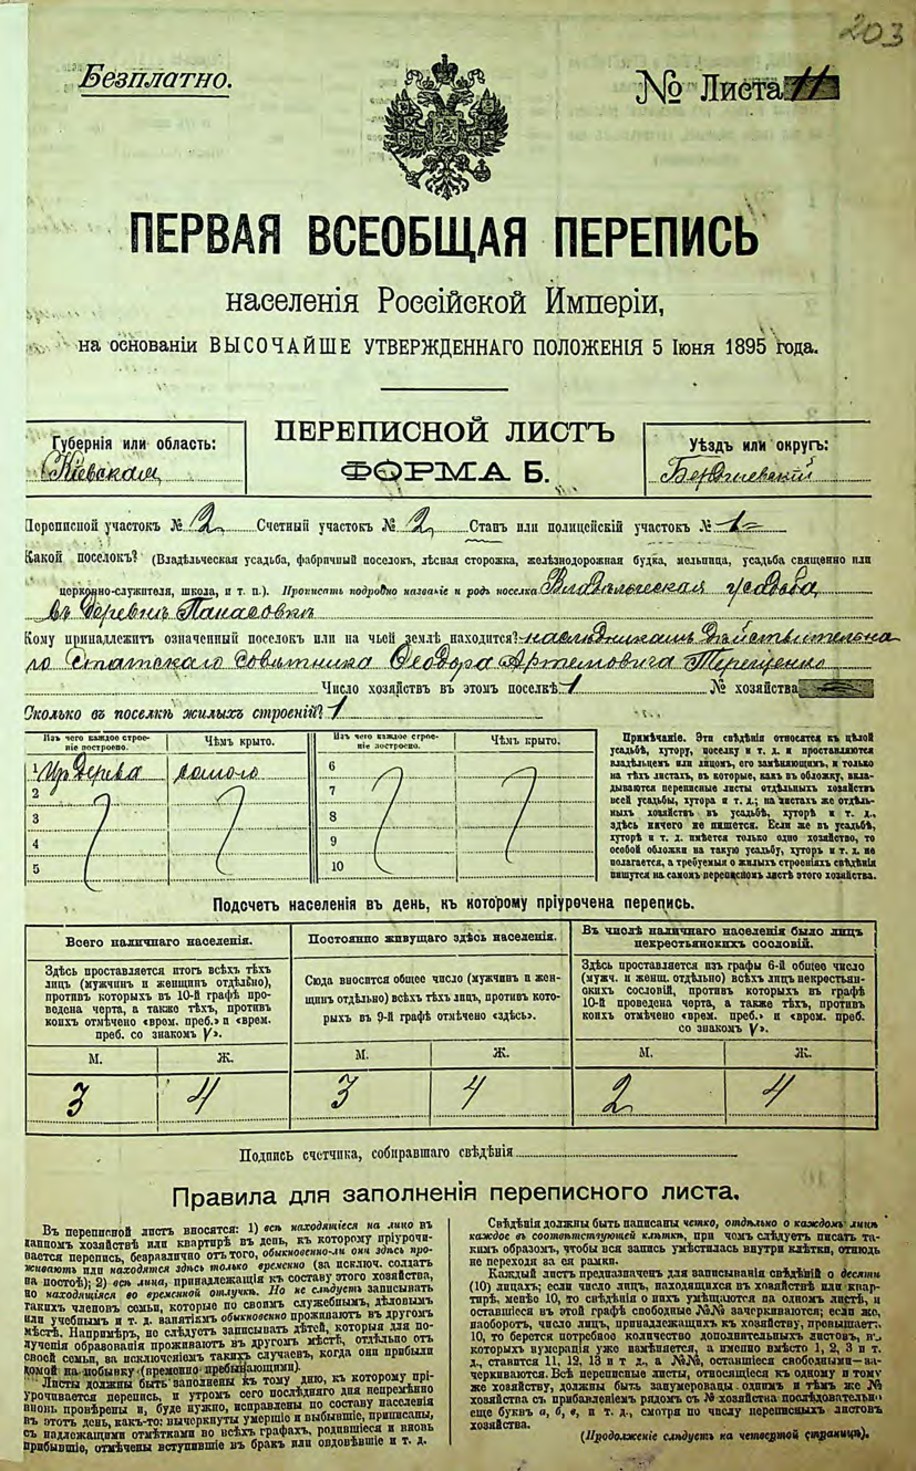 203
Безплатно.
№ Листа 11
ПЕРВАЯ ВСЕОБЩАЯ ПЕРЕПИСЬ
населенія Россійской Имперіи,
на основаніи ВЫСОЧАЙШЕ УТВЕРЖДЕННАГО ПОЛОЖЕНІЯ 5 Іюня 1895 года.
Губернія или область:
Кіевская
ПЕРЕПИСНОЙ ЛИСТЪ
ФОРМА Б.
Уѣздъ или округъ:
Бердичевскій
Переписной участокъ № 2 Счетный участокъ № 2 Станъ или полицейскій участокъ № 1
Какой поселокъ? (Владѣльческая усадьба, фабричный поселокъ, лѣсная сторожка, желѣзнодорожная будка, мельница, усадьба священно или
церковно-служителя, школа, и т. п.). Прописать подробно названіе и родъ поселка Владѣльческая усадьба
въ деревнѣ Панасовкѣ
Кому принадлежитъ означенный поселокъ или на чьей землѣ находится? наслѣдникамъ Дѣйствительна
го Статскаго Совѣтника Ѳеодора Артемовича Терещенко
Число хозяйствъ въ этомъ поселкѣ 1 № хозяйства
Сколько въ поселкѣ жилыхъ строеній? 1
Изъ чего каждое строе-
ніе построено.
Чѣмъ крыто.
Изъ чего каждое строе-
ніе построено.
Чѣмъ крыто.
1 Изъ дерева соломою
2
3
4
5
6
7
8
9
10
Примѣчаніе. Эти свѣдѣнія относятся къ цѣлой
усадьбѣ, хутору, поселку и т. д. и проставляются
владѣльцемъ или лицомъ, его замѣняющимъ, и только
на тѣхъ листахъ, въ которые, какъ въ обложку, вкла-
дываются переписные листы отдѣльныхъ хозяйствъ
всей усадьбы, хутора и т. д.; на листахъ же отдѣль-
ныхъ хозяйствъ въ усадьбѣ, хуторѣ и т. д.,
здѣсь ничего не пишется. Если же въ усадьбѣ,
хуторѣ и т. д. имѣется только одно хозяйство, то
особой обложки на такую усадьбу, хуторъ и т. д. не
полагается, а требуемыя о жилыхъ строеніяхъ свѣдѣнія
пишутся на самомъ переписномъ листѣ этого хозяйства.
Подсчетъ населенія въ день, къ которому пріурочена перепись.
Всего наличнаго населенія.
Здѣсь проставляется итогъ всѣхъ тѣхъ
лицъ (мужчинъ и женщинъ отдѣльно),
противъ которыхъ въ 10-й графѣ про-
ведена черта, а также тѣхъ, противъ
коихъ отмѣчено «врем. преб.» и «врем.
преб. со знакомъ V».
Постоянно живущаго здѣсь населенія.
Сюда вносится общее число (мужчинъ и жен-
щинъ отдѣльно) всѣхъ тѣхъ лицъ, противъ кото-
рыхъ въ 9-й графѣ отмѣчено «здѣсь».
Въ числѣ наличнаго населенія было лицъ
некрестьянскихъ сословій.
Здѣсь проставляется изъ графы 6-й общее число
(мужч. и женщ. отдѣльно) всѣхъ лицъ некрестьян-
скихъ сословій, противъ которыхъ въ графѣ
10-й проведена черта, а также тѣхъ, противъ
коихъ отмѣчено «врем. преб.» и «врем. преб.
со знакомъ V».
М. Ж. М. Ж. М. Ж.
3 4 3 4 2 4
Подпись счетчика, собиравшаго свѣдѣнія
Правила для заполненія переписного листа.
Въ переписной листъ вносятся: 1) всѣ находящіеся на лицо въ
данномъ хозяйствѣ или квартирѣ въ день, къ которому пріурочи-
вается перепись, безразлично отъ того, обыкновенно-ли они здѣсь про-
живаютъ или находятся здѣсь только временно (за исключ. солдатъ
на постоѣ); 2) всѣ лица, принадлежащія къ составу этого хозяйства,
но находящіяся во временной отлучкѣ. Но не слѣдуетъ записывать
такихъ членовъ семьи, которые по своимъ служебнымъ, дѣловымъ
или учебнымъ и т. д. занятіямъ обыкновенно проживаютъ въ другомъ
мѣстѣ. Напримѣръ, не слѣдуетъ записывать дѣтей, которыя для по-
лученія образованія проживаютъ въ другомъ мѣстѣ, отдѣльно отъ
своей семьи, за исключеніемъ такихъ случаевъ, когда они прибыли
домой на побывку (временно пребывающими).
Листы должны быть заполнены къ тому дню, къ которому прі-
урочивается перепись, и утромъ сего послѣдняго дня непремѣнно
вновь провѣрены и, буде нужно, исправлены по составу населенія
въ этотъ день, какъ-то: вычеркнуты умершіе и выбывшіе, приписаны,
съ надлежащими отмѣтками во всѣхъ графахъ, родившіеся и вновь
прибывшіе, отмѣчены вступившіе въ бракъ или овдовѣвшіе и т. д.
Свѣдѣнія должны быть написаны четко, отдѣльно о каждомъ лицѣ
каждое въ соотвѣтствующей клѣткѣ, при чемъ слѣдуетъ писать та-
кимъ образомъ, чтобы вся запись умѣстилась внутри клѣтки, отнюдь
не переходя за ея рамки.
Каждый листъ предназначенъ для записыванія свѣдѣній о десяти
(10) лицахъ; если число лицъ, находящихся въ хозяйствѣ или квар-
тирѣ, менѣе 10, то свѣдѣнія о нихъ умѣщаются на одномъ листѣ, и
оставшіеся въ этой графѣ свободные №№ зачеркиваются; если же,
наоборотъ, число лицъ, принадлежащихъ къ хозяйству, превышаетъ
10, то берется потребное количество дополнительныхъ листовъ, въ
которыхъ нумерація уже измѣняется, а именно вмѣсто 1, 2, 3 и т.
д., ставится 11, 12, 13 и т. д., а №№, оставшіеся свободными—за-
черкиваются. Всѣ переписные листы, относящіеся къ одному и тому
же хозяйству, должны быть занумерованы однимъ и тѣмъ же №
хозяйства съ прибавленіемъ рядомъ съ № хозяйства послѣдовательно
еще буквъ а, б, в, и т. д., смотря по числу переписныхъ листовъ
хозяйства.
(Продолженіе слѣдуетъ на четвертой страницѣ).